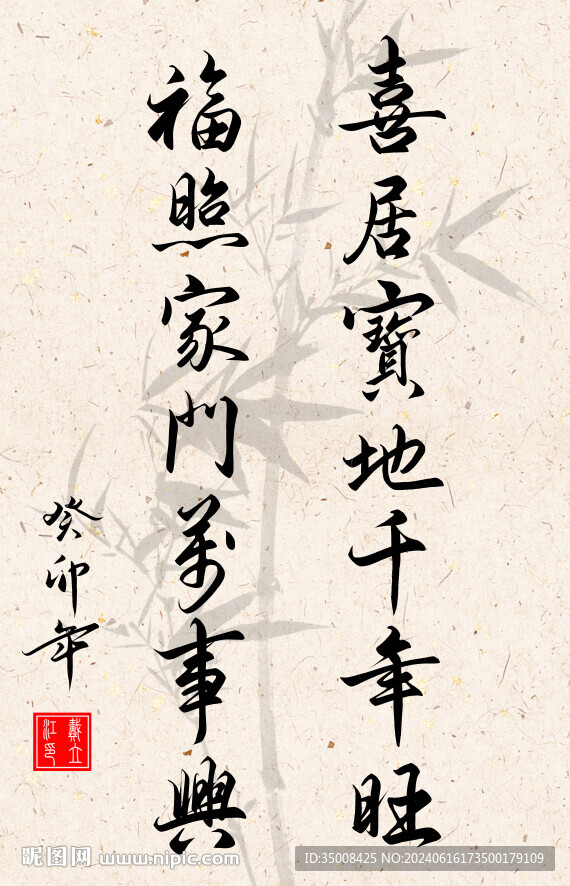 喜居寶地千年旺
福照家門萬事興
癸卯年
戴立江印
昵图网 www.nipic.com
ID:35008425 NO:20240616173500179109